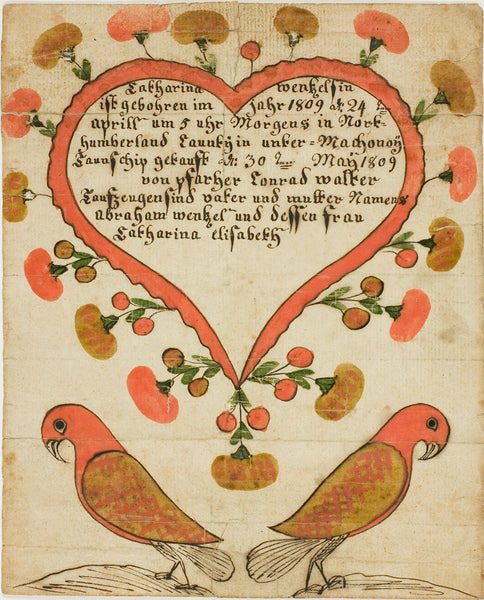 Catharina wentzelsin
ist gebohren im Jahr 1809 dn 24 tn
aprill um 5 uhr Morgens in Nort-
humberland Caunty in unter = Machonoy
Taunschip getauft dn 30 tn May 1809
von pfarher Conrad walter
Taufzeugen sind vater und mutter Namens
abraham wentzel und dessen frau
Catharina elisabeth